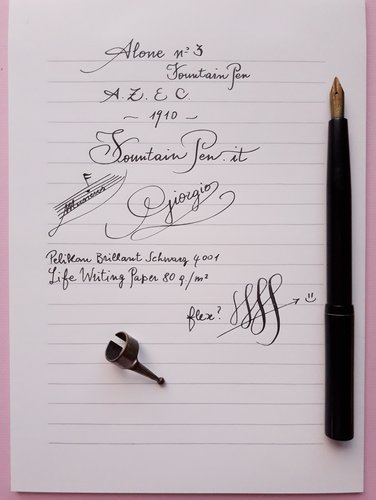 Alone n° 3
Fountain Pen
A.Z.E C.
~ 1910 ~
Fountain Pen.it
Giorgio
Pelikan Brillant Schwarz 4001
Life Writing Paper 80 g/m²
flex?